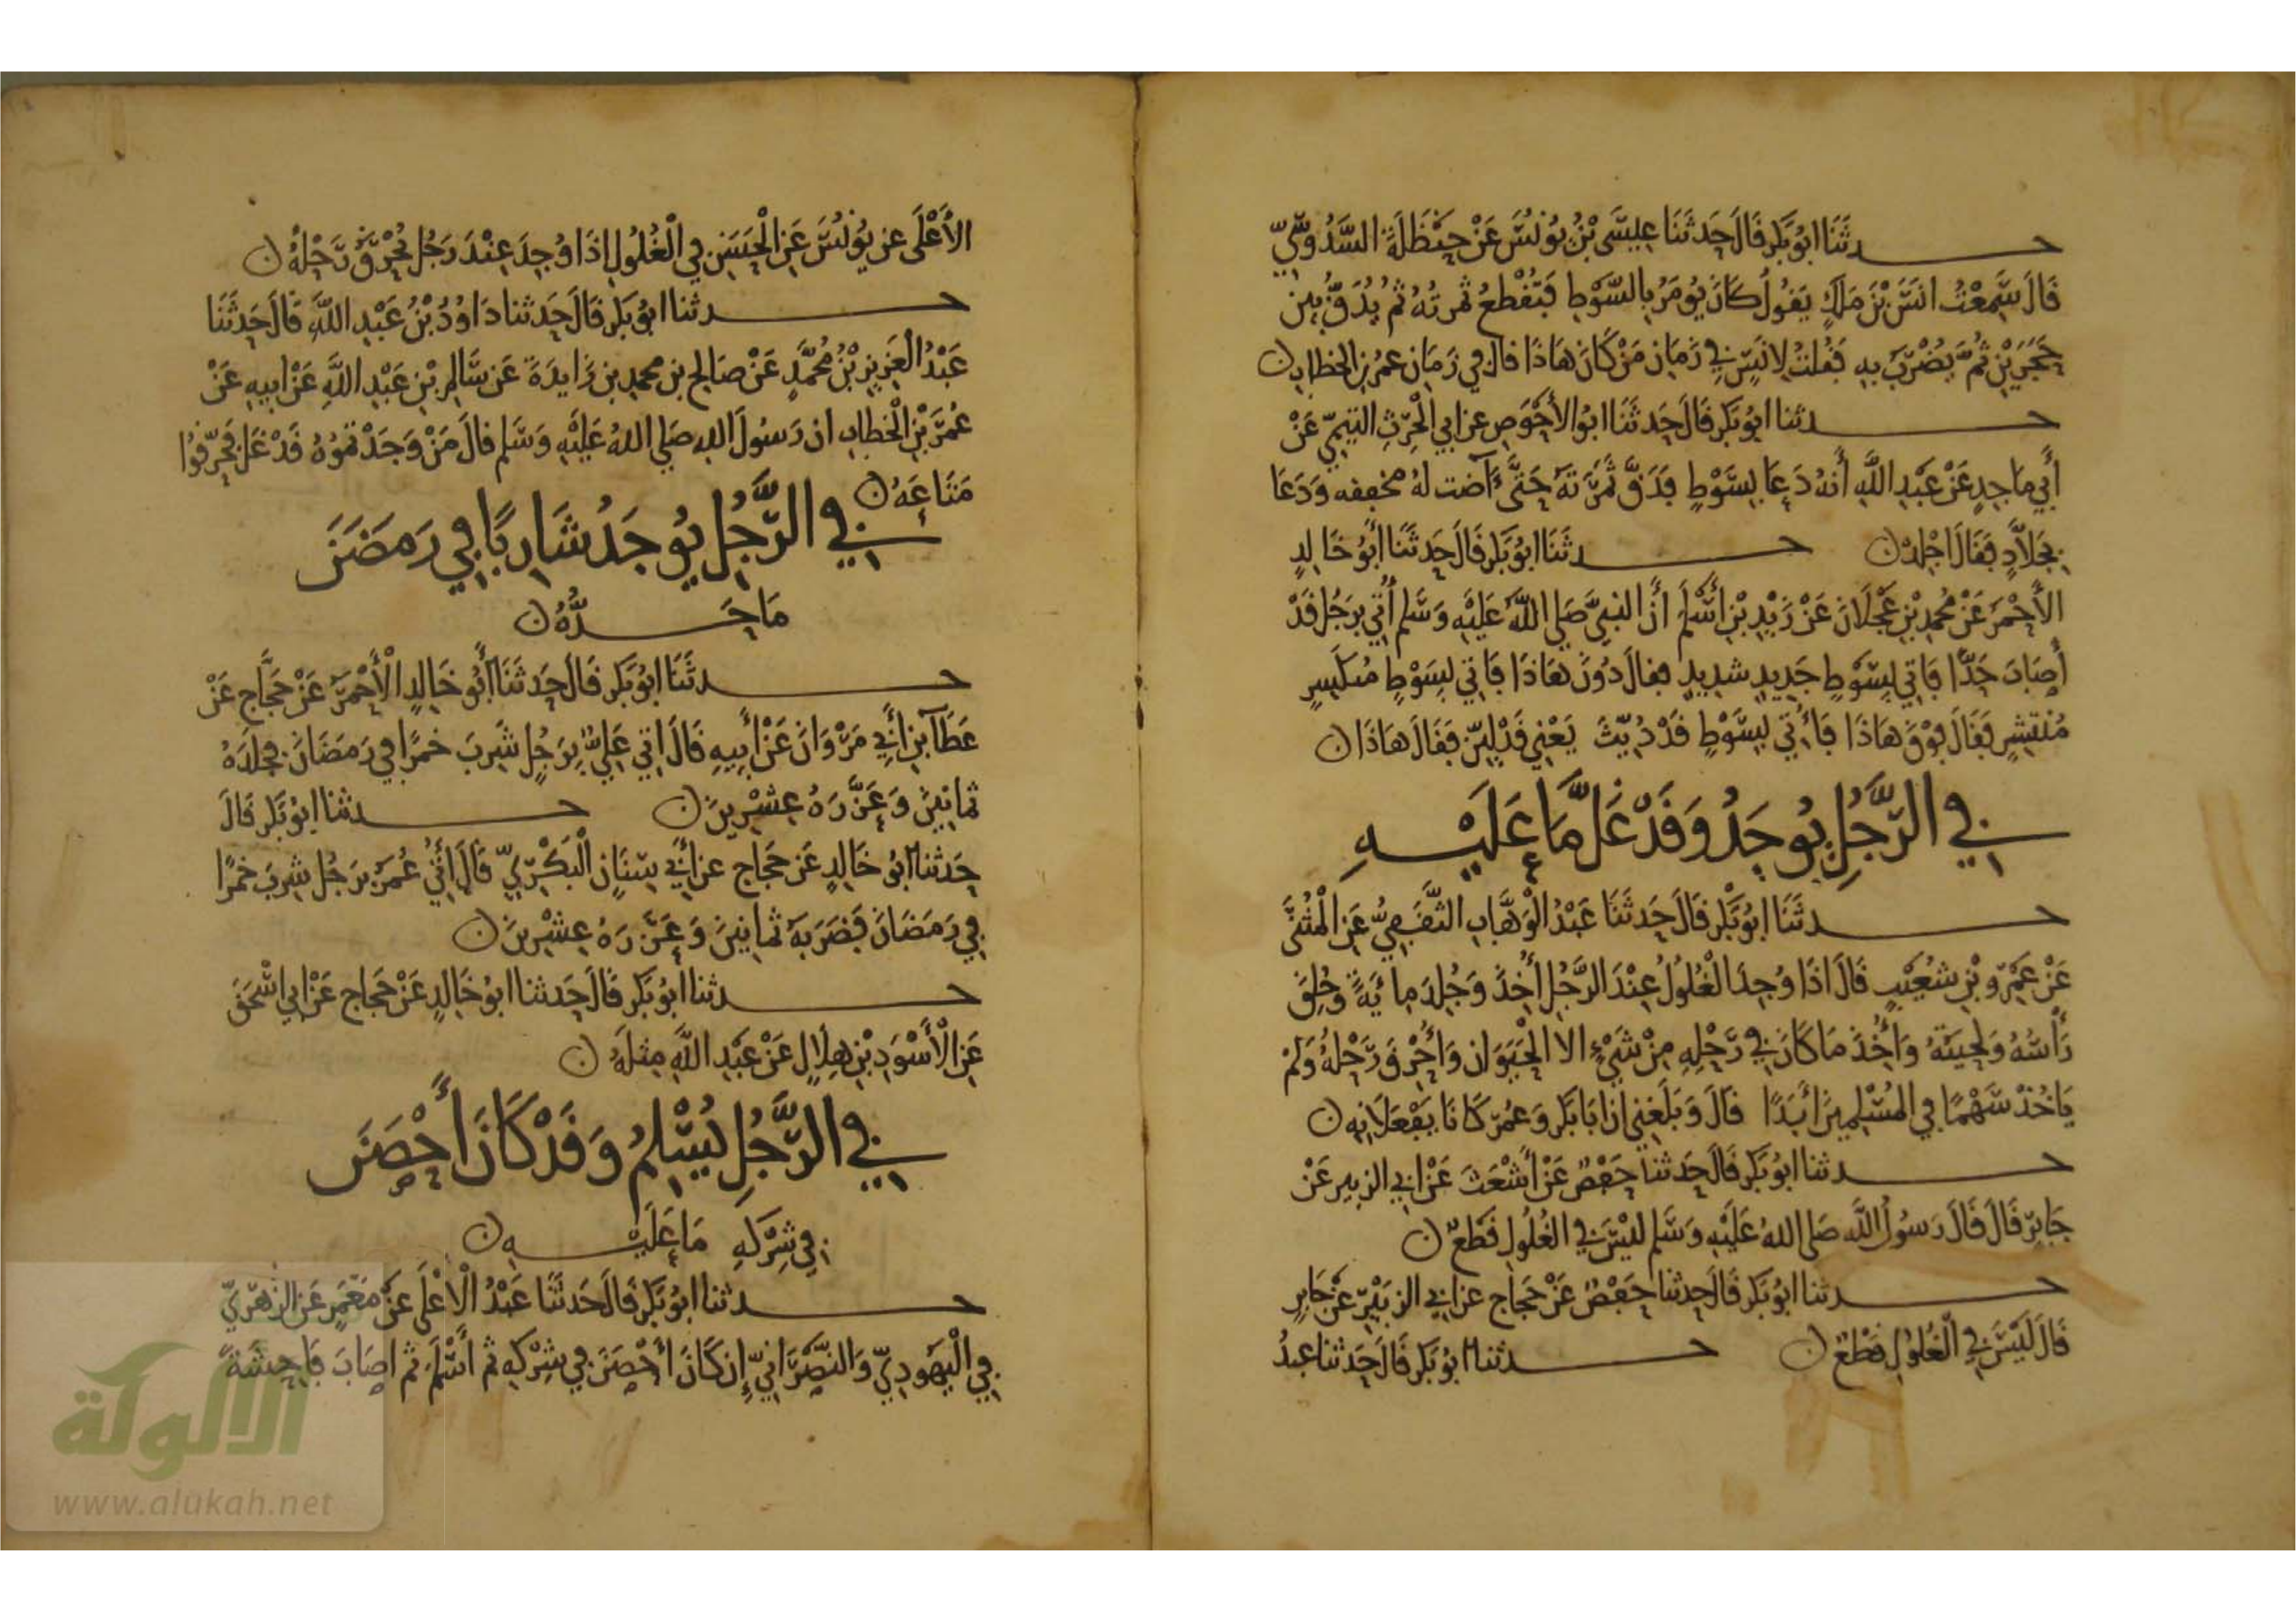 حدثنا ابو بكر قال حدثنا عيسى بن يونس عن حنظلة السدوسي
قال سمعت انس بن ملك يقول كان يومر بالسوط فتقطع ثمرته ثم يدق بين
حجرين ثم يضرب به فقلت لانس في زمان من كان هاذا قال في زمان عمر بن الخطاب
حدثنا ابو بكر قال حدثنا ابو الأحوص عن ابي الحرث التيمي عن
أبي ماجد عن عبد الله أنه دعا بسوط فدق ثمرته حتى آضت له مخفقه ودعا
بجلاد فقال اجلد حدثنا ابو بكر قال حدثنا أبو خالد
الأحمر عن محمد بن عجلان عن زيد بن أسلم أن النبي صلى الله عليه وسلم أتي برجل قد
أصاب حدا فاتي بسوط جديد شديد فقال دون هاذا فاتي بسوط منكسر
منتشر فقال فوق هاذا فأتي بسوط قد ديث يعني قد لين فقال هاذا
في الرجل يوجد وقد غل ما عليه
حدثنا ابو بكر قال حدثنا عبد الوهاب الثقفي عن المثنى
عن عمرو بن شعيب قال اذا وجد الغلول عند الرجل أخذ وجلد ماية وحلق
رأسه ولحيته وأخذ ما كان في رحله من شيء الا الحيوان وأحرق رحله ولم
ياخذ سهما في المسلمين أبدا قال وبلغني ان ابا بكر وعمر كانا يفعلانه
حدثنا ابو بكر قال حدثنا حفص عن أشعث عن ابي الزبير عن
جابر قال قال رسول الله صلى الله عليه وسلم ليس في الغلول قطع
حدثنا ابو بكر قال حدثنا حفص عن حجاج عن ابي الزبير عن جابر
قال ليس في الغلول قطع حدثنا ابو بكر قال حدثنا عبد
الأعلى عن يونس عن الحسن في الغلول اذا وجد عند رجل يحرق رحله
حدثنا ابو بكر قال حدثنا داود بن عبد الله قال حدثنا
عبد العزيز بن محمد عن صالح بن محمد بن زايدة عن سالم بن عبد الله عن ابيه عن
عمر بن الخطاب ان رسول الله صلى الله عليه وسلم قال من وجدتموه قد غل فحرقوا
متاعه
في الرجل يوجد شاربا في رمضن
ما حده
حدثنا ابو بكر قال حدثنا أبو خالد الأحمر عن حجاج عن
عطا بن أبي مروان عن أبيه قال اتي علي برجل شرب خمرا في رمضان فجلده
ثمانين وعزره عشرين حدثنا ابو بكر قال
حدثنا ابو خالد عن حجاج عن أبي سنان البكري قال أتي عمر برجل شرب خمرا
في رمضان فضربه ثمانين وعزره عشرين
حدثنا ابو بكر قال حدثنا ابو خالد عن حجاج عن ابي اسحق
عن الأسود بن هلال عن عبد الله مثله
في الرجل يسلم وقد كان أحصن
في شركه ما عليه
حدثنا ابو بكر قال حدثنا عبد الاعلى عن معمر عن الزهري
في اليهودي والنصراني إن كان أحصن في شركه ثم أسلم ثم اصاب فاحشة
الألوكة
www.alukah.net